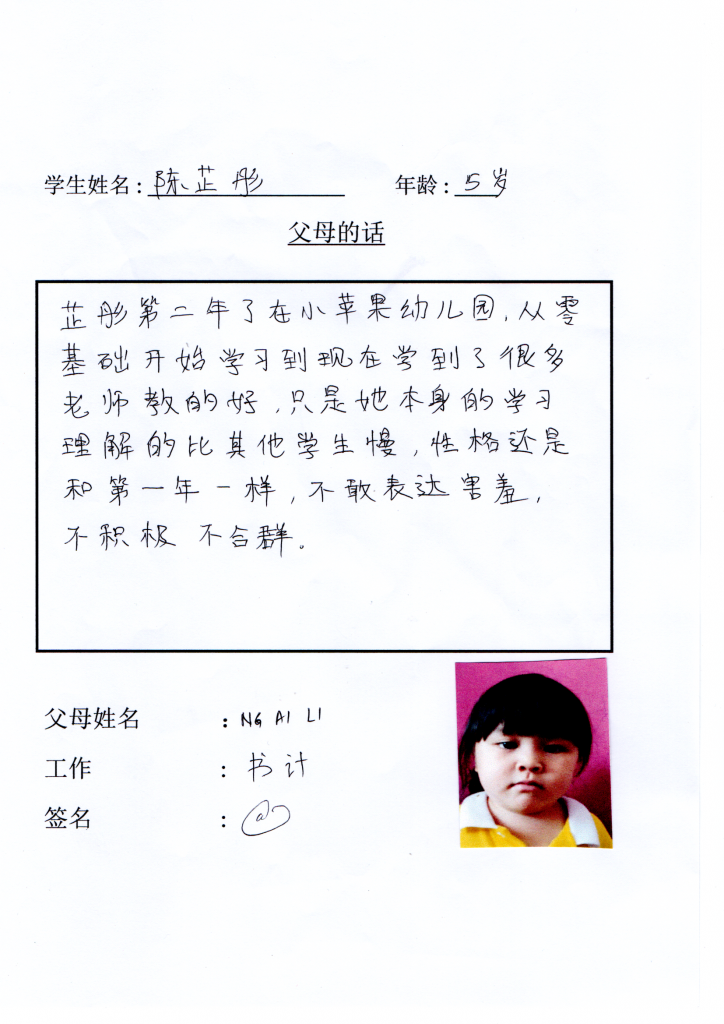 学生姓名：陈芷彤 年龄：5岁
父母的话
芷彤第二年了在小苹果幼儿园，从零
基础开始学习到现在学到了很多
老师教的好，只是她本身的学习
理解的比其他学生慢，性格还是
和第一年一样，不敢表达害羞，
不积极 不合群。
父母姓名 : NG AI LI
工作 : 书计
签名 :